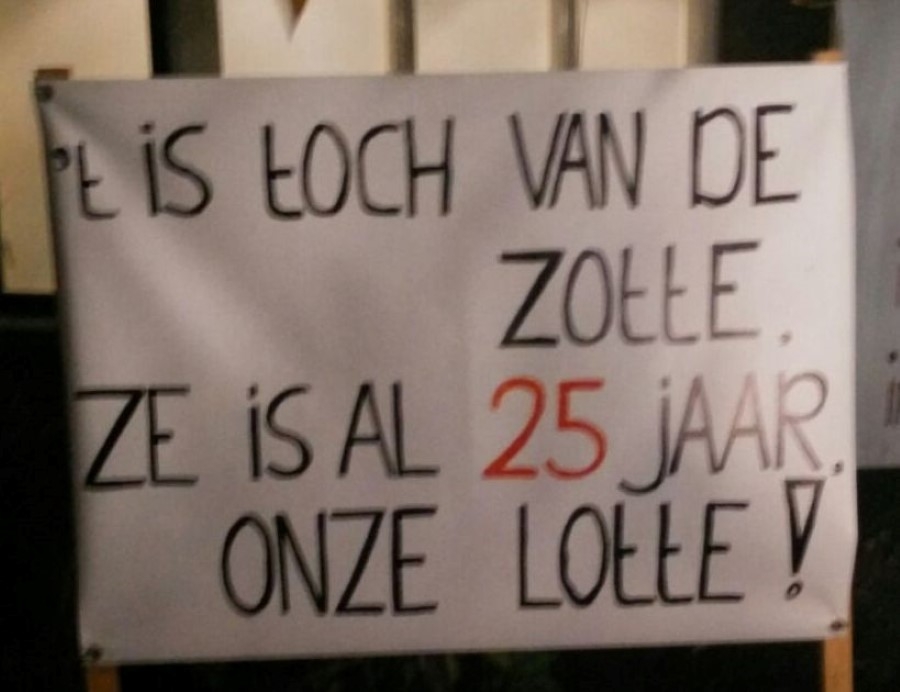 't is tOCH VAN DE
ZOttE.
ZE iS AL 25 jAAR.
ONZE LOttE!